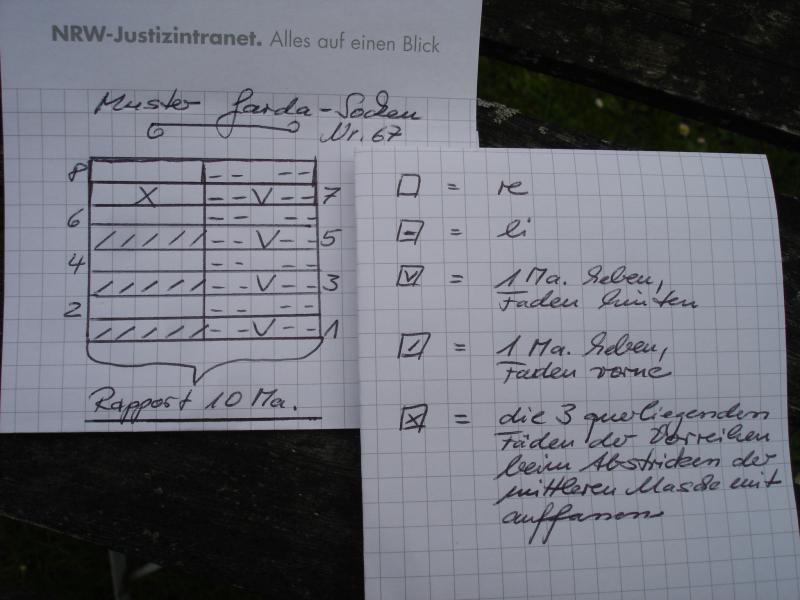 NRW-Justizintranet. Alles auf einen Blick
Muster Garda-Socken
Nr. 67
8
X -- V -- 7
6
///// -- V -- 5
4
///// -- V -- 3
2
///// -- V -- 1
Rapport 10 Ma.
□ = re
⊟ = li
V = 1 Ma. heben,
Faden hinten
/ = 1 Ma. heben,
Faden vorne
X = die 3 querliegenden
Fäden der Vorreihen
beim Abstricken der
mittleren Masche mit
auffassen